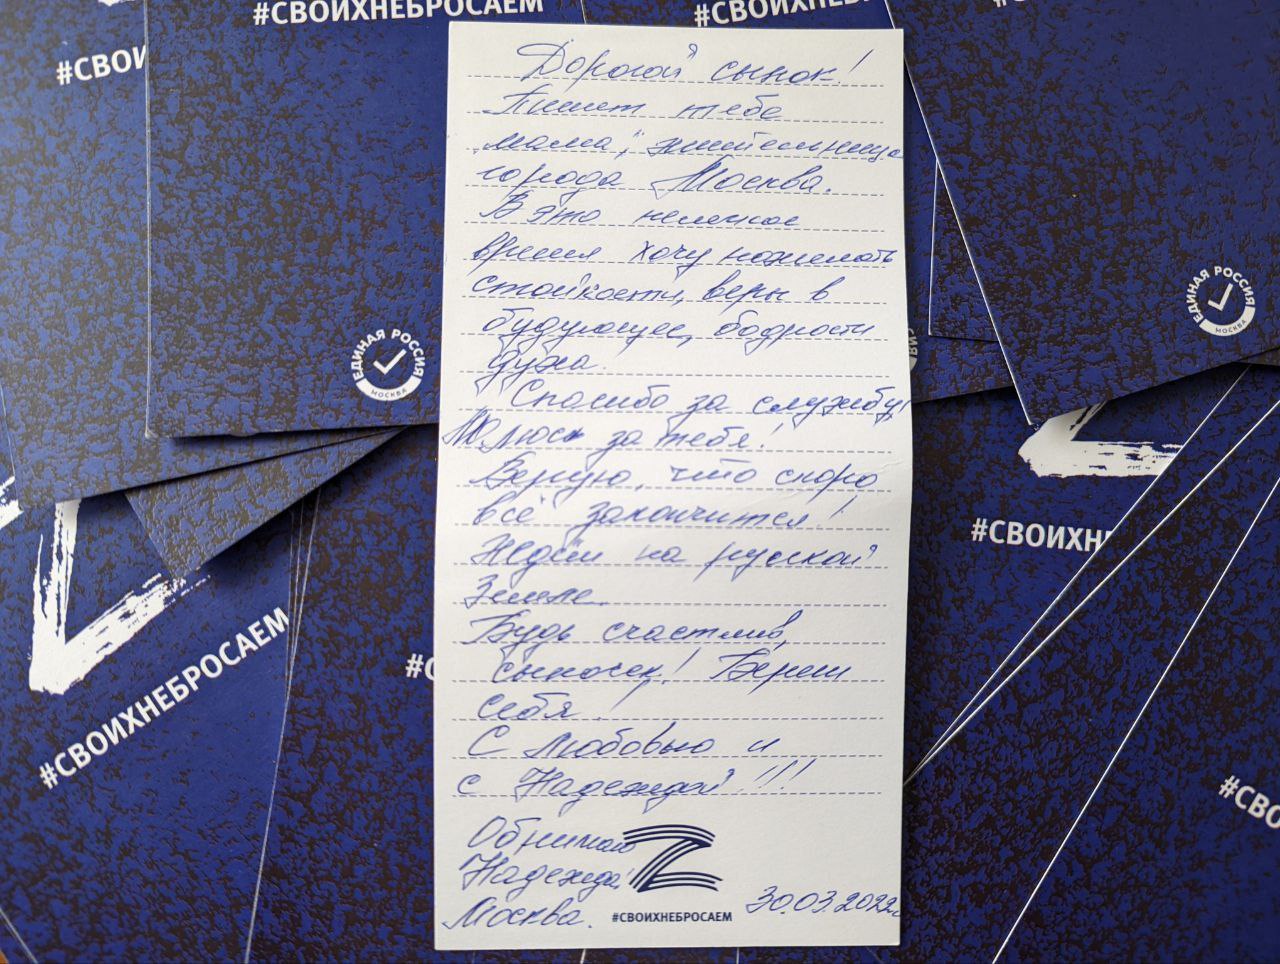 #СВОИХНЕБРОСАЕМ
#СВОИХНЕБРОСА
#СВОИ
Дорогой сынок!
Пишет тебе
„мама", жительница
города Москва.
В это нелегкое
время хочу пожелать
стойкости, веры в
будующее, бодрости
духа.
Спасибо за службу!
Молюсь за тебя!
Верую, что скоро
всё закончится!
Ждём на русской
Земле.
Будь счастлив,
сыночек! Береги
себя!
С Любовью и
с Надеждой!!!
Обнимаю
Надежда!
Москва.
30.03.2022г
#СВОИХНЕБРОСАЕМ
ЕДИНАЯ РОССИЯ
МОСКВА
ЕДИНАЯ РОССИЯ
МОСКВА
#СВОИХН
#СВОИХНЕБРОСАЕМ
#С
#СВО